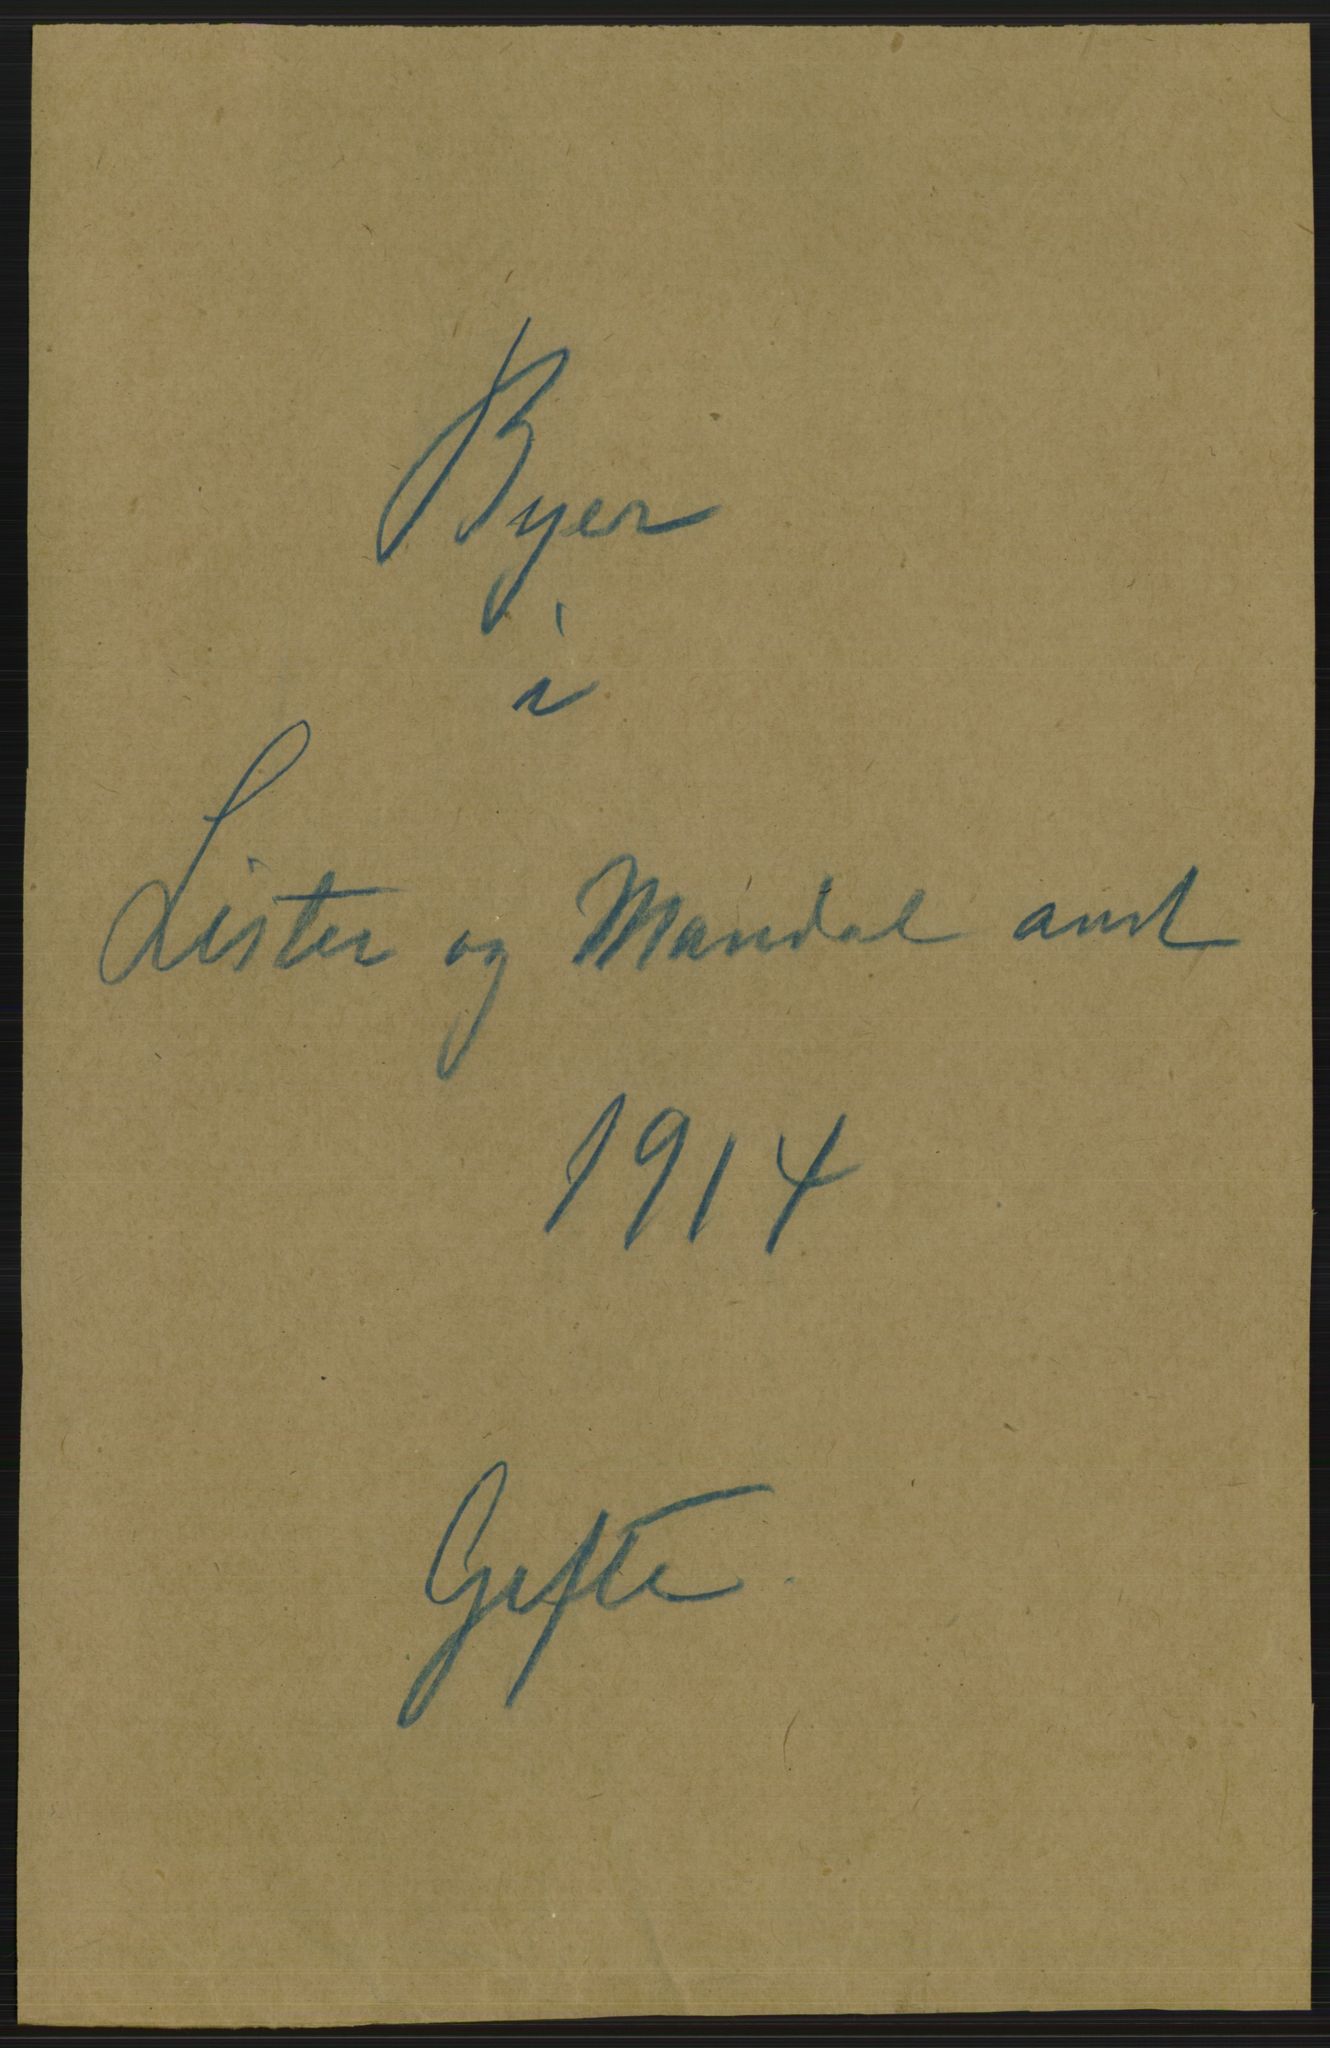 Byer
i
Lister og Mandal amt
1914
Gifte.